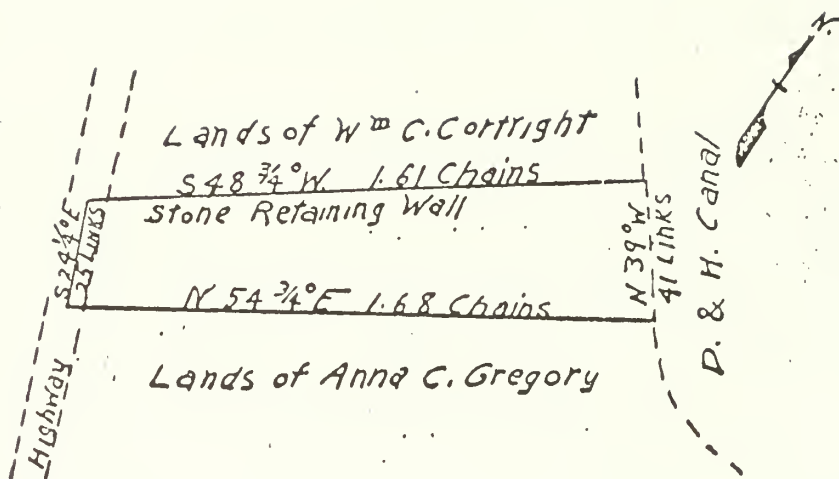 N.
Lands of Wm C. Cortright
S 48 3/4° W. 1.61 Chains
Stone Retaining Wall
S 24 1/4° E
25 LINKS
N 39° W
41 LINKS
D. & H. Canal
N 54 3/4° E 1.68 Chains
Lands of Anna C. Gregory
Highway